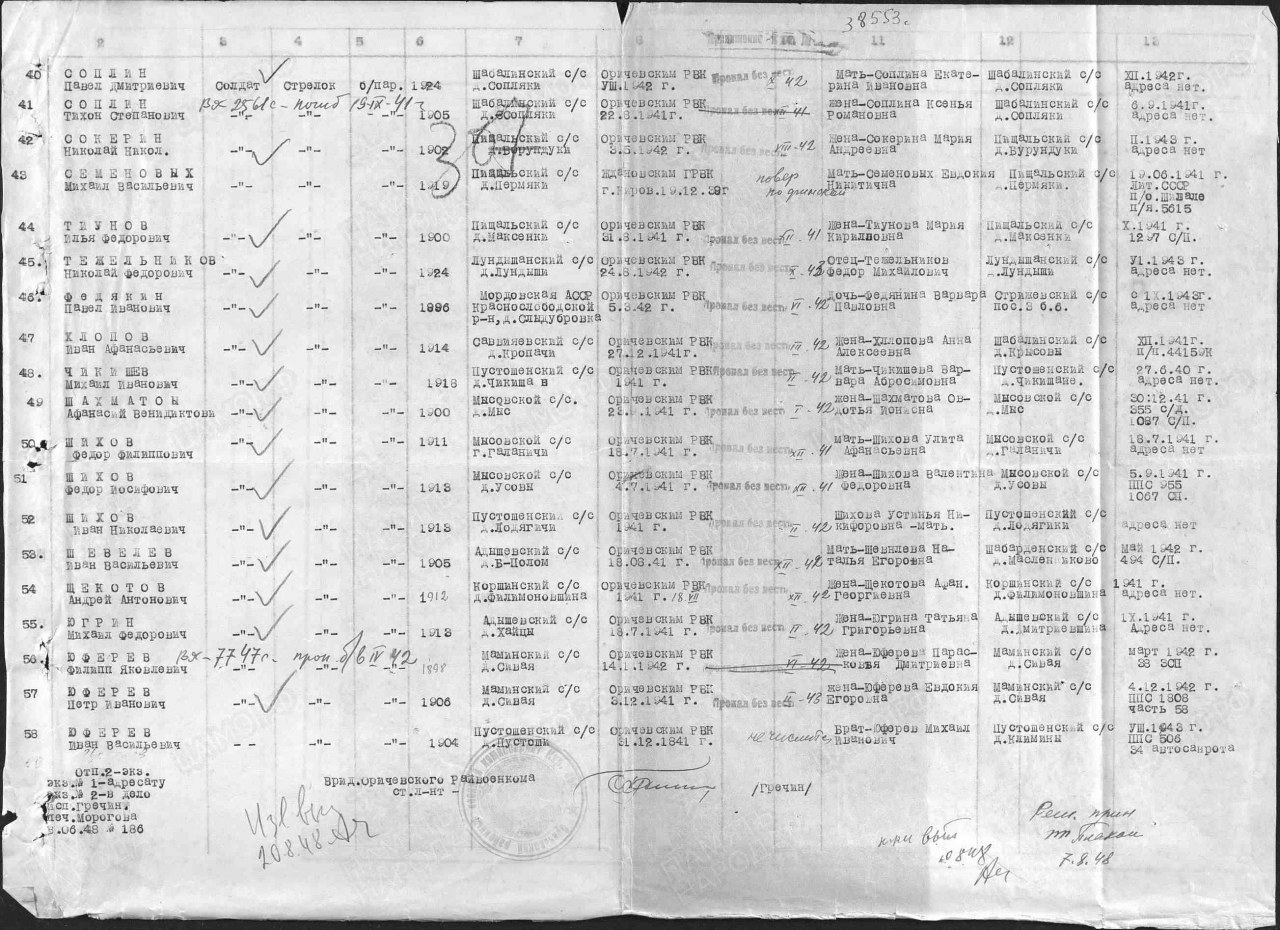 38553с
2 3 4 5 6 7 8 11 12 13
40 СОПЛИН Шабалинский с/с Оричевским РВК Мать-Соплина Екате- Шабалинский с/с ХП.1942г.
Павел Дмитриевич Солдат Стрелок б/пар. 1924 д.Сопляки УШ.1942 г. Пропал без вести X 42 рина Ивановна д.Сопляки адреса нет.
41 СОПЛИН Вх 2561с - погиб 15-IX-41 г Шабалинский с/с Оричевским РВК жена-Соплина Ксенья Шабалинский с/с 6.9.1941г.
Тихон Степанович -"- -"- -"- 1905 д.Сопляки 22.8.1941г. Пропал без вести XII 41 Романовна д.Сопляки адреса нет.
42 СОКЕРИН Пищальский с/с Оричевским РВК Жена-Сокерина Мария Пищальский с/с П.1943 г.
Николай Никол. -"- -"- -"- 1902 д.Бурундуки 3.5.1942 г. Пропал без вести VIII-42 Андреевна д.Бурундуки адреса нет
43 СЕМЕНОВЫХ Пищальский с/с Ждановским ГРВК повер Мать-Семеновых Евдокия Пищальский с/с 19.06.1941 г.
Михаил Васильевич -"- -"- -"- 1919 д.Пермяки г.Киров.19.12.39г Никитична д.Пермяки. Лит.СССР
п/о.Шилале
п/я.5615
44 ТИУНОВ Пищальский с/с Оричевским РВК Жена-Тиунова Мария Пищальский с/с Х.1941 г.
Илья Федорович -"- -"- -"- 1900 д.Максенки 31.8.1941 г. Пропал без вести XII-41 Кирилловна д.Максенки 1297 С/П.
45. ТЕЖЕЛЬНИКОВ Лундышанский с/с Оричевским РВК Отец-Тежельников Лундышанский с/с У1.1943 г.
Николай Федорович -"- -"- -"- 1924 д.Лундыши 24.8.1942 г. Пропал без вести X-43 Федор Михайлович д.Лундыши адреса нет.
46. ФЕДЯКИН Мордовская АССР Оричевским РВК Дочь-Федянина Варвара Стришевский с/с с 1Х.1943г.
Павел Иванович -"- -"- -"- 1896 Краснослободской 5.3.42 г. Пропал без вести VI-42 Павловна пос.3 б.6. адреса нет
р-н,д.Слыдубровка
47 ХЛОПОВ Саввияевский с/с Оричевским РВК Жена-Хллопова Анна Шабалинский с/с ХП.1941г.
Иван Афанасьевич -"- -"- -"- 1914 д.Кропачи 27.12.1941г. Пропал без вести III-42 Алексеевна д.Крысовы п/п.44159К
48. ЧИКИШЕВ Пустошенский с/с Оричевским РВК Мать-Чикишева Вар- Пустошенский с/с 27.6.40 г.
Михаил Иванович -"- -"- -"- 1918 д.Чикишав 1941 г. Пропал без вести II-42 вара Абросимовна д.Чикишане. адреса нет.
49 ШАХМАТОВ Мысовской с/с. Оричевским РВК жена-Шахматова Ов- Мысовской с/с 30.12.41 г.
Афанасий Венидиктови -"- -"- -"- 1900 д.Мыс 23.9.1941 г. Пропал без вести V-42 дотья Ионисна д.Мыс 355 с/Д.
1087 С/П.
50. ШИХОВ -"- -"- -"- 1911 Мысовской с/с Оричевским РВК мать-Шихова Улита Мысовской с/с 18.7.1941 г.
Федор Филиппович г.Галаничи 18.7.1941 г. Пропал без вести XII-41 Афанасьевна д.Галаничи адреса нет
51 ШИХОВ Мысовской с/с Оричевским РВК Жена-Шихова Валентина Мысовской с/с 5.9.1941 г.
Федор Иосифович -"- -"- -"- 1913 д.Усовы 4.7.1941 г. Пропал без вести XII-41 Федоровна д.Усовы ППС 955
1067 СП.
52 ШИХОВ Пустошенский с/с Оричевским РВК Шихова Устинья Ни- Пустошенский с/с
Иван Николаевич -"- -"- -"- 1913 д.Лодягичи 1941 г. Пропал без вести II-42 кифоровна -мать. д.Лодягики адреса нет
53. ШЕВЕЛЕВ Адышевский с/с Оричевским РВК Мать-Шевилева На- Шабарденский с/с Май 1942 г.
Иван Васильевич -"- -"- -"- 1905 д.Б-Полом 18.08.41 г. Пропал без вести XII-42 талья Егоровна д.Масленниково 494 С/П.
54 ЩЕКОТОВ Коршинский с/с Оричевским РВК Жена-Щекотова Афан. Коршинский с/с 1941 г.
Андрей Антонович -"- -"- -"- 1912 д.Филимоновщина 1941 г. 18.VII Пропал без вести XII-42 Георгиевна д.Филимоновшина адреса нет.
55. ЮГРИН Адышевский с/с Оричевским РВК Жена-Югрина Татьяна Адышевский с/с 1Х.1941 г.
Михаил Федорович -"- -"- -"- 1913 д.Хайцы 18.7.1941 г. Пропал без вести II-42 Григорьевна д.Дмитриевщина Адреса нет.
56 ЮФЕРЕВ Вх-7747с- проп б/в IV 42 Маминский с/с Оричевским РВК Жена-Юферева Парас- Маминский с/с март 1942 г.
Филипп Яковлевич -"- -"- -"- 1898 д.Сивая 14.1.1942 г. VI-42 ковья Дмитриевна д.Сивая 38 ЗСП
57 ЮФЕРЕВ Маминский с/с Оричевским РВК жена-Юферева Евдокия Маминский с/с 4.12.1942 г.
Петр Иванович -"- -"- -"- 1906 д.Сивая 3.12.1941 г. Пропал без вести II-43 Егоровна д.Сивая ППС 1808
часть 58
58 ЮФЕРЕВ Пустошенский с/с Оричевским РВК Брат-Юферев Михаил Пустошенский с/с УШ.1943 г.
Иван Васильевич - - -"- -"- 1904 д.Пустоши 31.12.1841 г. не числится Иванович д.Климины ППС 506
34 автосанрота
Отп.2-экз.
экз.№ 1-адресату Врид.Оричевского Райвоенкома
экз.№ 2-в дело ст.л-нт - /Гречин/
исп.Гречин.
печ.Морогова
в.06.48 № 186
20.8.48
7.8.48